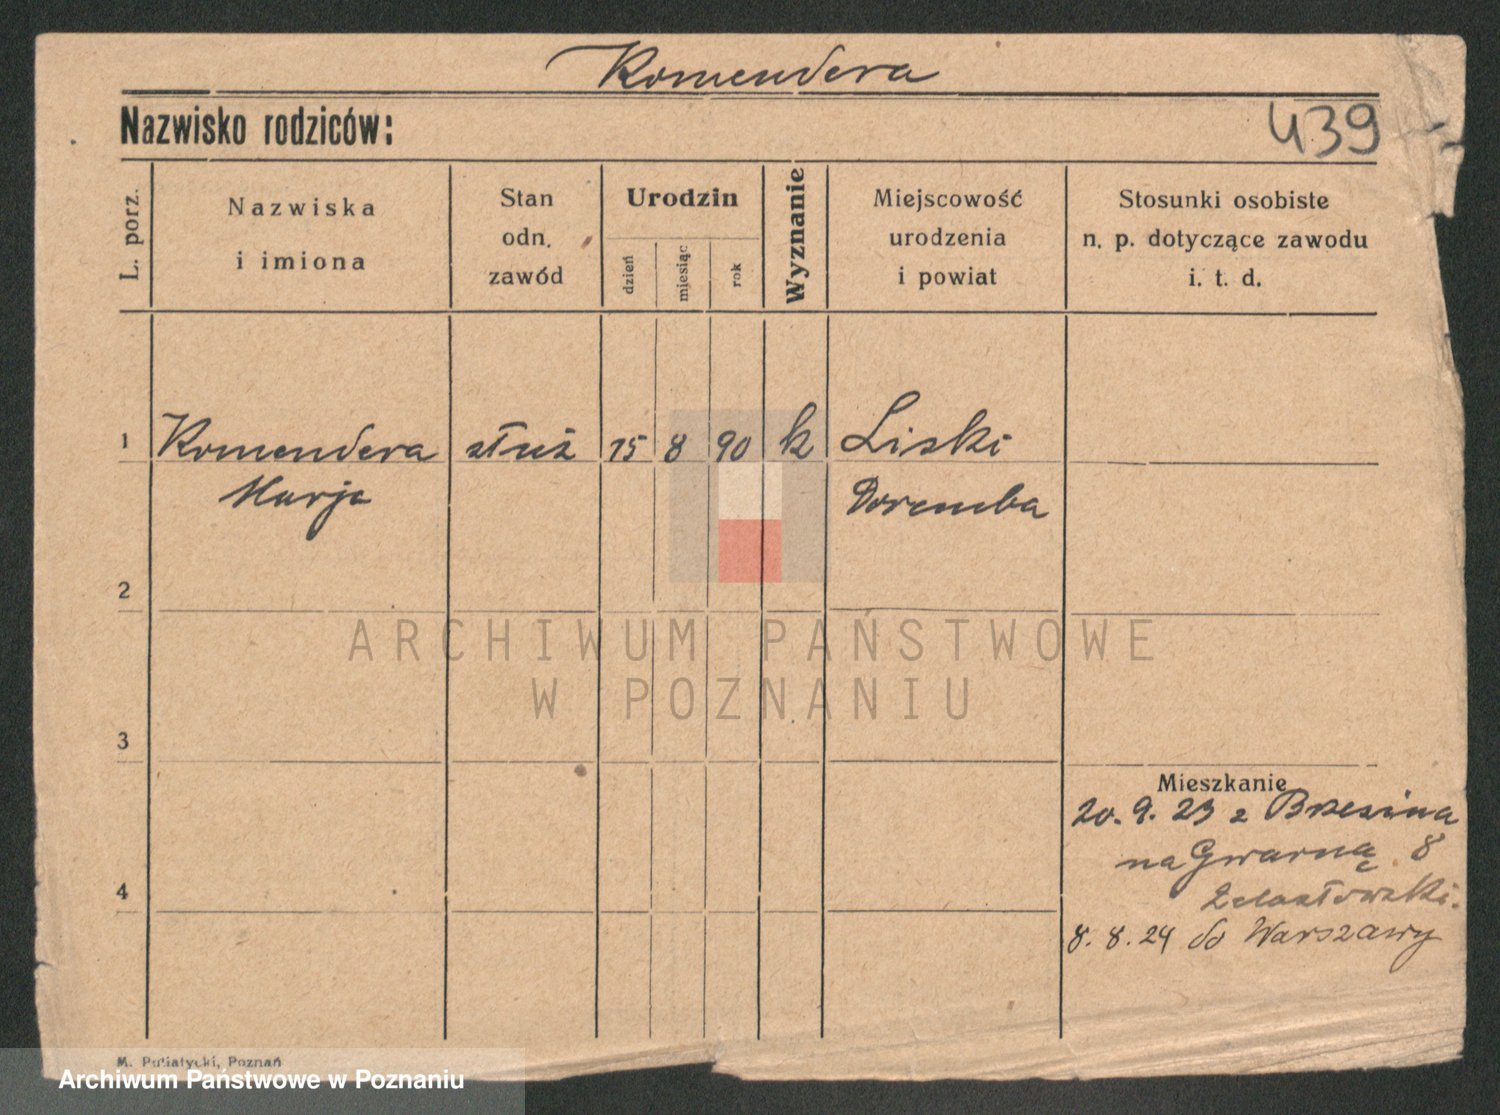 Komendera
Nazwisko rodziców:
439
L. porz.
Nazwiska
i imiona
Stan
odn.
zawód
Urodzin
dzień
miesiąc
rok
Wyznanie
Miejscowość
urodzenia
i powiat
Stosunki osobiste
n. p. dotyczące zawodu
i. t. d.
1 Komendera służ 15 8 90 k Liski
Marja
2
3
4
Mieszkanie
20. 9. 23 z
na Gwarną 8
8. 8. 24 do Warszawy
ARCHIWUM PAŃSTWOWE
W POZNANIU
M. Putiatycki, Poznań
Archiwum Państwowe w Poznaniu